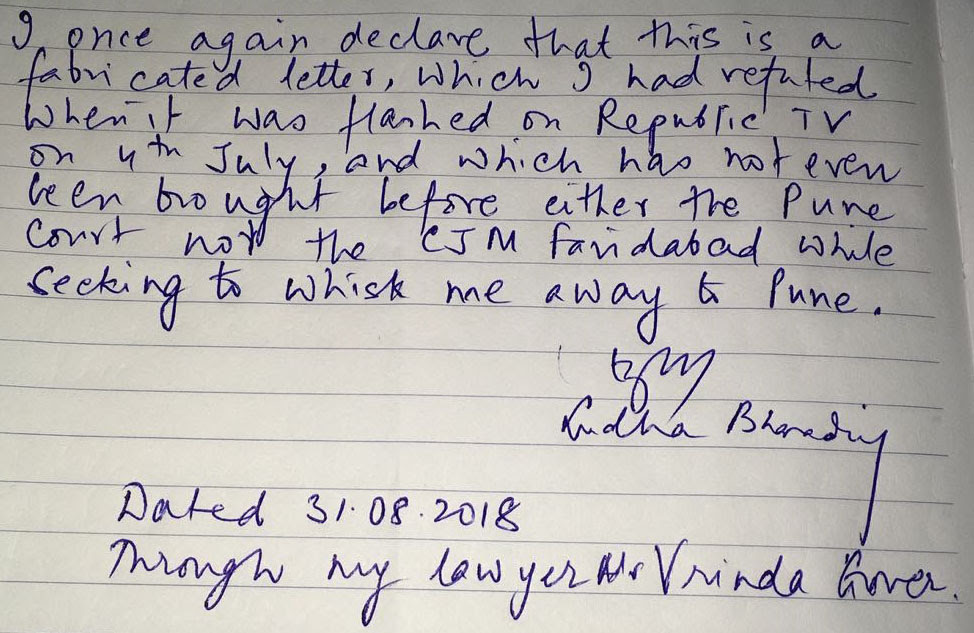 I once again declare that this is a
fabricated letter, which I had refuted
when it was flashed on Republic TV
on 4th July, and which has not even
been brought before either the Pune
Court nor the CJM Faridabad while
seeking to whisk me away to Pune.
Sudha Bharadwaj
Dated 31.08.2018
Through my lawyer Ms Vrinda Grover.